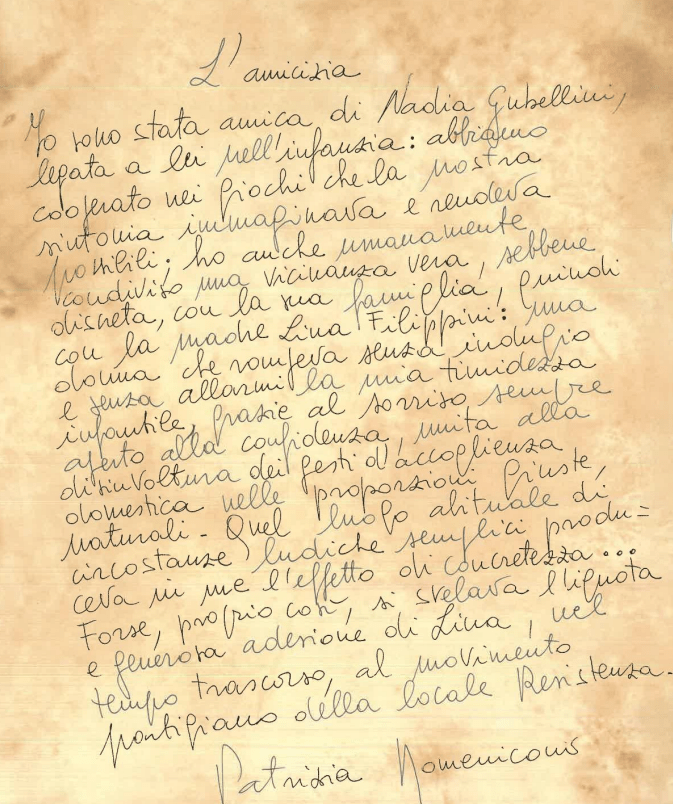 L'amicizia
Io sono stata amica di Nadia Gubellini,
legata a lei nell'infanzia: abbiamo
cooperato nei giochi che la nostra
sintonia immaginava e rendeva
possibili; ho anche umanamente
condiviso una vicinanza vera, sebbene
discreta, con la sua famiglia, quindi
con la madre Lina Filippini: una
donna che rompeva senza indugio
e senza allarmi la mia timidezza
infantile, grazie al sorriso sempre
aperto alla confidenza, unita alla
disinvoltura dei gesti d'accoglienza
domestica nelle proporzioni giuste,
naturali - Quel luogo abituale di
circostanze ludiche semplici produ=
ceva in me l'effetto di concretezza...
Forse, proprio così, si svelava l'ignota
e generosa adesione di Lina, nel
tempo trascorso, al movimento
partigiano della locale Resistenza.
Patrizia Domeniconi